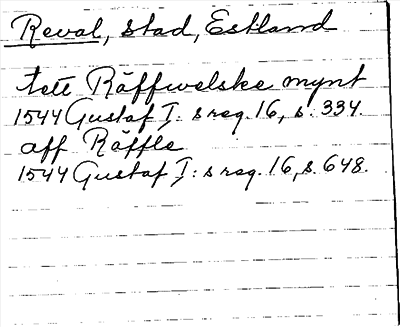 Reval, stad, Estland
tett Räffwelske mynt
1544 Gustaf I: s reg. 16, s. 334.
aff Räffle
1544 Gustaf I: s reg. 16, s. 648.